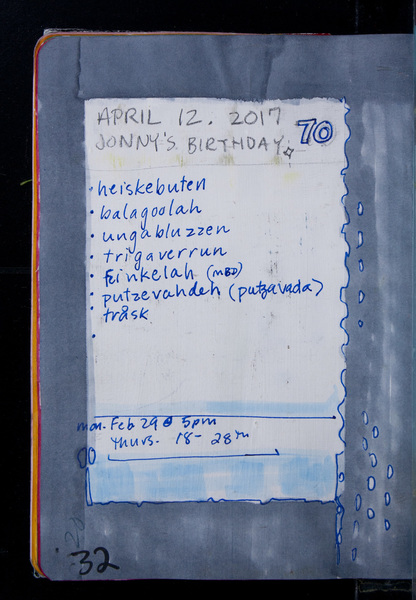 APRIL 12. 2017
JONNY'S BIRTHDAY 70
• heiskebuten
• balagoolah
• ungabluzzen
• trigaverrun
• feinkelah (MBD)
• putzevahdeh (putzavada)
• tråsk
•
mon. Feb 29 @ 5pm
thurs. 18- 28th
32